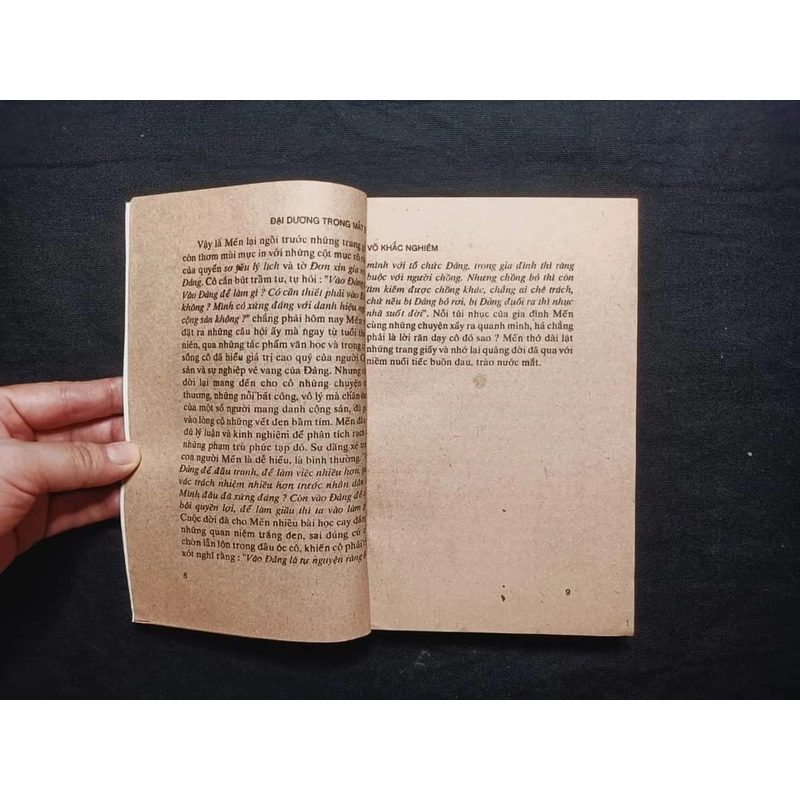 ĐẠI DƯƠNG TRONG MẮT
Vậy là Mến lại ngồi trước những trang
còn thơm mùi mực in với những cột mục rõ
của quyển sơ yếu lý lịch và tờ Đơn xin gia
Đảng. Cô cắn bút trầm tư, tự hỏi : "Vào Đảng
Vào Đảng để làm gì ? Có cần thiết phải vào
không ? Mình có xứng đáng với danh hiệu
cộng sản không ?" chẳng phải hôm nay Mến
đặt ra những câu hỏi ấy mà ngay từ tuổi
niên, qua những tác phẩm văn học và trong
sống cô đã hiểu giá trị cao quý của người
sản và sự nghiệp vẻ vang của Đảng. Nhưng
đời lại mang đến cho cô những chuyện
thương, những nỗi bất công, vô lý mà chân
của một số người mang danh cộng sản, đã
vào lòng cô những vết đen bầm tím. Mến
đủ lý luận và kinh nghiệm để phân tích rạch
những phạm trù phức tạp đó. Sự dằng xé
con người Mến là dễ hiểu, là bình thường.
Đảng để đấu tranh, để làm việc nhiều hơn,
vác trách nhiệm nhiều hơn trước nhân dân
Mình đâu đã xứng đáng ? Còn vào Đảng để
bôi quyền lợi, để làm giầu thì ta vào làm
Cuộc đời đã cho Mến nhiều bài học cay
những quan niệm trắng đen, sai đúng cứ
chờn lẫn lộn trong đầu óc cô, khiến cô phải
xót nghĩ rằng : "Vào Đảng là tự nguyện ràng
6
VÕ KHẮC NGHIÊM
mình với tổ chức Đảng, trong gia đình thì ràng
buộc với người chồng. Nhưng chồng bỏ thì còn
tìm kiếm được chồng khác, chẳng ai chê trách,
chứ nếu bị Đảng bỏ rơi, bị Đảng đuổi ra thì nhục
nhã suốt đời". Nỗi tủi nhục của gia đình Mến
cùng những chuyện xẩy ra quanh mình, há chẳng
phải là lời răn dạy cô đó sao ? Mến thở dài lật
những trang giấy và nhớ lại quãng đời đã qua với
niềm nuối tiếc buồn đau, trào nước mắt.
9